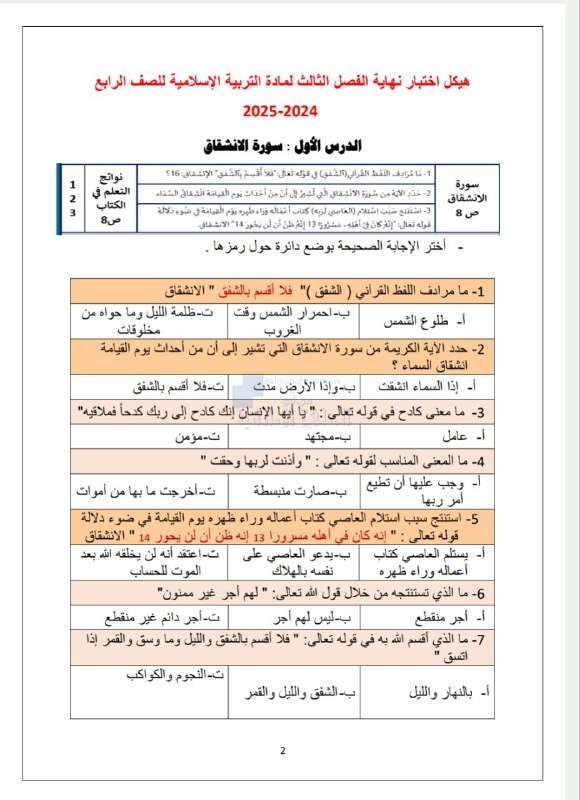 هيكل اختبار نهاية الفصل الثالث لمادة التربية الإسلامية للصف الرابع
2025-2024
الدرس الأول : سورة الانشقاق
سورة الانشقاق ص 8
1- مَا مُرَادِفُ اللَّفْظِ القُرْآنِي (الشَّفَقِ) فِي قَوْلِهِ تَعَالَى: "فَلَا أُقْسِمُ بِالشَّفَقِ" الإنشقاق: 16؟
2- حَدِّدِ الآيَةَ مِن سُورَةِ الانْشِقَاقِ الَّتِي تُشِيرُ إِلَى أَنَّ مِنْ أَحْدَاثِ يَوْمِ القِيَامَةِ انْشِقَاقَ السَّمَاءِ.
3- اسْتَنْتِجْ سَبَبَ اسْتِلَامِ (العَاصِي لِرَبِّهِ) كِتَابَ أَعْمَالِهِ وَرَاءَ ظَهْرِهِ يَوْمَ القِيَامَةِ فِي ضَوْءِ دَلَالَةِ
قوله تعالى: "إِنَّهُ كَانَ فِي أَهْلِهِ مَسْرُورًا 13 إِنَّهُ ظَنَّ أَن لَّن يَحُورَ 14" الانشقاق.
نواتج التعلم في الكتاب ص8
1
2
3
- أختر الإجابة الصحيحة بوضع دائرة حول رمزها .
1- ما مرادف اللفظ القرآني ( الشفق )" فلا أقسم بالشفق " الانشقاق
أ- طلوع الشمس
ب-احمرار الشمس وقت الغروب
ت-ظلمة الليل وما حواه من مخلوقات
2- حدد الآية الكريمة من سورة الانشقاق التي تشير إلى أن من أحداث يوم القيامة
انشقاق السماء ؟
أ- إذا السماء انشقت
ب-وإذا الأرض مدت
ت-فلا أقسم بالشفق
3- ما معنى كادح في قوله تعالى : " يا أيها الإنسان إنك كادح إلى ربك كدحاً فملاقيه"
أ- عامل
ب-مجتهد
ت-مؤمن
4- ما المعنى المناسب لقوله تعالى : " وأذنت لربها وحقت "
أ- وجب عليها أن تطيع أمر ربها
ب-صارت منبسطة
ت-أخرجت ما بها من أموات
5- استنتج سبب استلام العاصي كتاب أعماله وراء ظهره يوم القيامة في ضوء دلالة
قوله تعالى : " إنه كان في أهله مسرورا 13 إنه ظن أن لن يحور 14 " الانشقاق
أ- يستلم العاصي كتاب أعماله وراء ظهره
ب-يدعو العاصي على نفسه بالهلاك
ت-اعتقد أنه لن يخلقه الله بعد الموت للحساب
6- ما الذي تستنتجه من خلال قول الله تعالى: " لهم أجر غير ممنون"
أ- أجر منقطع
ب-ليس لهم أجر
ت-أجر دائم غير منقطع
7- ما الذي أقسم الله به في قوله تعالى: " فلا أقسم بالشفق والليل وما وسق والقمر إذا
اتسق "
أ- بالنهار والليل
ب-الشفق والليل والقمر
ت-النجوم والكواكب
2